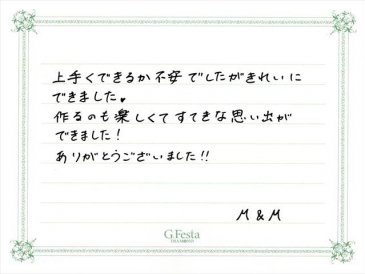 上手くできるか不安でしたがきれいに
できました。
作るのも楽しくてすてきな思い出が
できました！
ありがとうございました!!
M & M
G.Festa